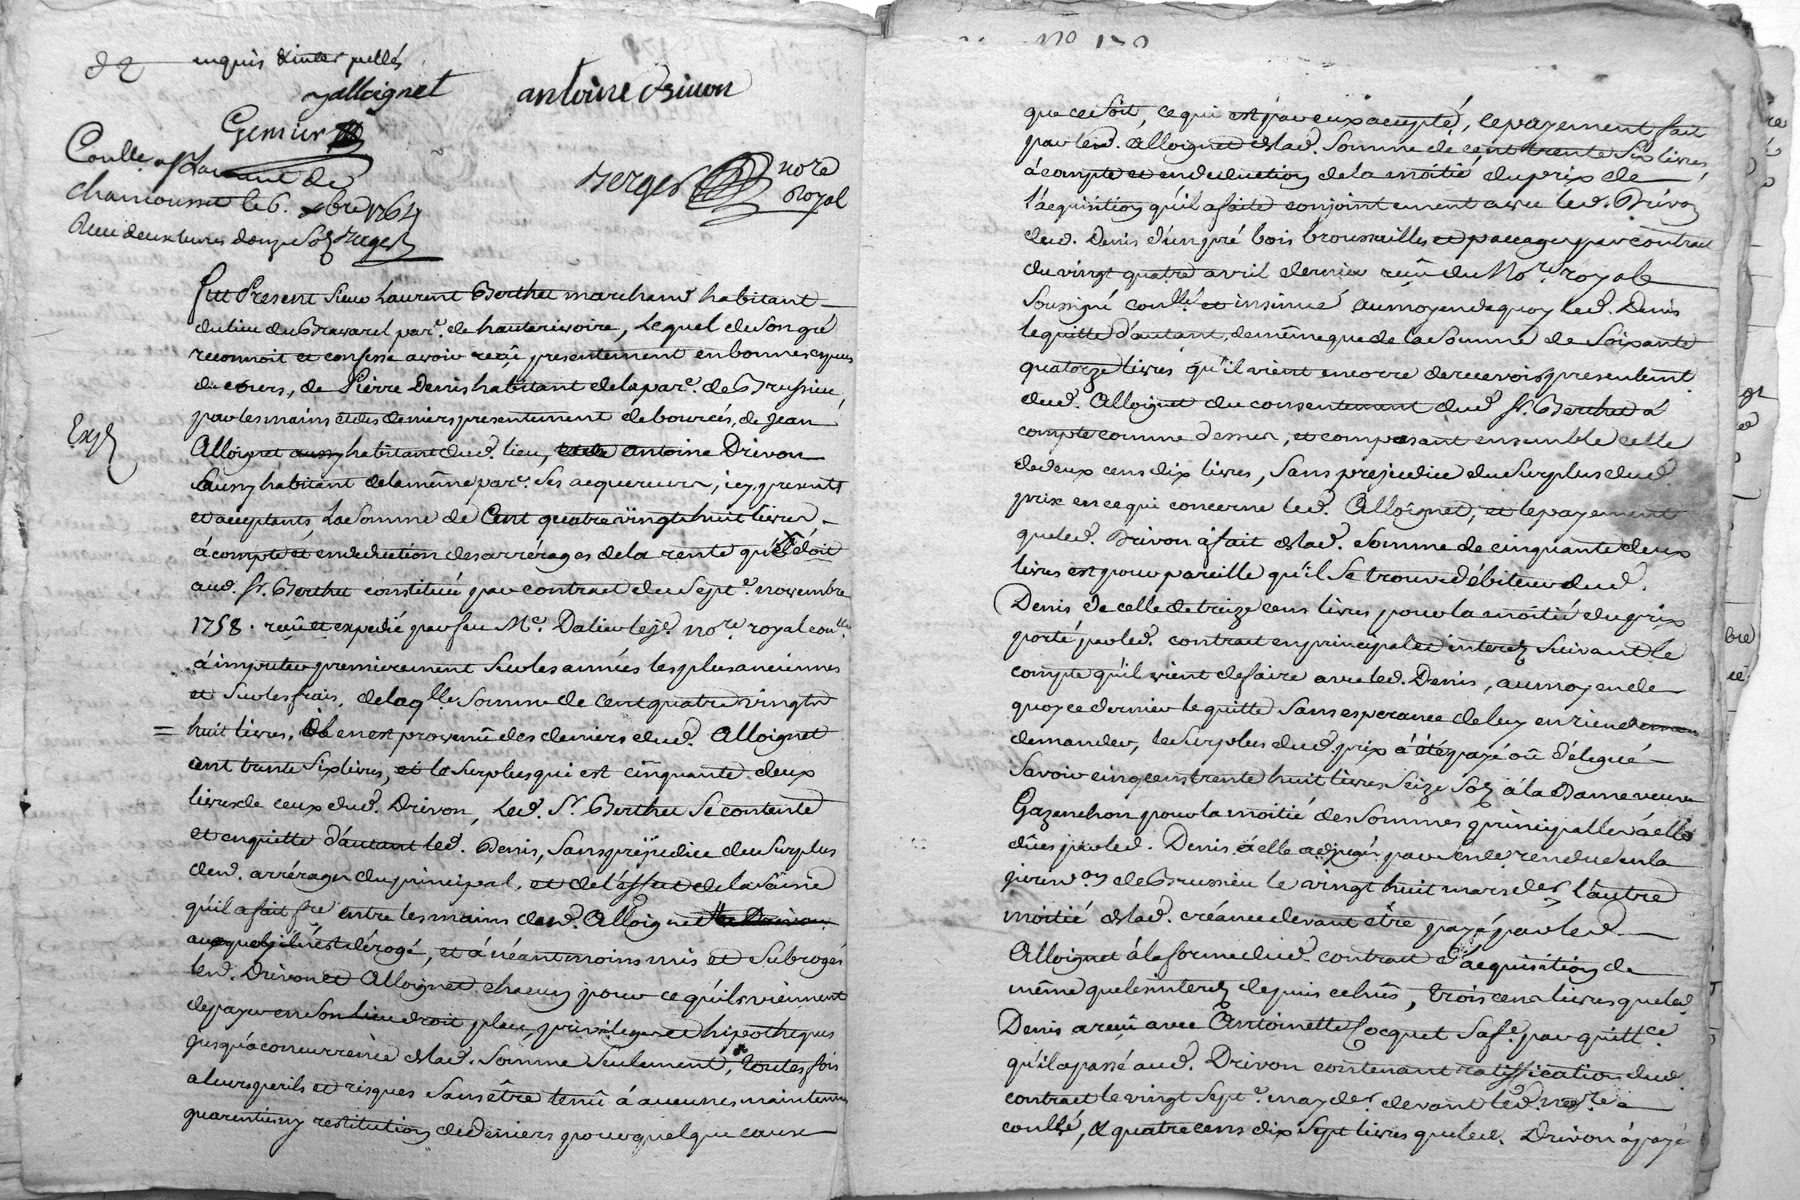 enquis & interpellés
Alloignet antoine Drivon
Gemier
Conllé a St Laurent de
chamousset le 6. xbre 1764
Reçu deux livres douze sols Berger
Berger nore Royal
Expé
Fut Present Sieur Laurent Berthet marchand habitant
du lieu du Bravard par. de hauterivoire, lequel de son gré
reconnoit et confesse avoir reçu presentement en bonnes especes
de cours, de Pierre Denis habitant de la par. de Brussieu,
par les mains et des deniers presentement debourcés, de Jean
Alloignet aussy habitant dud. lieu, antoine Drivon
aussy habitant de la même par. Ses acquereurs, icy presents
et acceptants, La Somme de Cent quatre vingt huit livres
à compte et en deduction des arrérages de la rente qu'il doit
aud. Sr. Berthet constitué par contract du Sept novembre
1758. reçu et expedié par feu Me. Dalieu le je. nore. royal
à imputer premierement Sur les années les plus anciennes
et Sur les frais, de laqlle Somme de Cent quatre vingts
huit livres, il en est provenu des deniers dud. Alloignet
cent trente Six livres, et le Surplus qui est cinquante deux
livres de ceux dud. Drivon, Led. Sr. Berthet Se contente
et en quitte d'autant led. Denis, Sans prejudice du Surplus
desd. arrérages du principal, et de l'effet de la Saisie
qu'il a fait fre entre les mains dud. Alloignet
auxquels il n'est dérogé, et a néantmoins mis et Subrogés
lesd. Drivon et Alloignet chacun pour ce qu'ils viennent
de payer en Son lieu droit place, privileges et hipotheques
jusqu'à concurrence de lad. Somme Seulement, toutes fois
a leurs perils et risques Sans être tenû à aucunes maintenue
guarentie ny restitution de deniers pour quelque cause
que ce Soit, ce qui est par eux accepté, le payement fait
par led. Alloignet de lad. Somme de cent trente Six livres,
à compte et en deduction de la moitié du prix de
l'acquisition qu'il a faite conjointement avec led. Drivon
dud. Denis d'un pré bois broussailles et paccages par contract
du vingt quatre avril dernier reçu du Nore royale
Soussigné conllé et insinué au moyen de quoy led. Denis
le quitte d'autant, de même que de la Somme de Soixante
quatorze livres qu'il vient encorre de recevoir presentemt.
dud. Alloignet du consentement dud. Sr. Berthet à
compte comme dessus, et composant ensemble celle
de deux cens dix livres, Sans prejudice du Surplus dud.
prix en ce qui concerne led. Alloignet, et le payement
que led. Drivon a fait de lad. Somme de cinquante deux
livres est pour pareille qu'il Se trouve débiteur dud.
Denis de celle de treize cens livres pour la moitié du prix
porté par led. contract en principal et interet Suivant le
compte qu'il vient de faire avec led. Denis, au moyen de
quoy ce dernier le quitte Sans esperance de luy en rien
demander, le Surplus dud. prix a été payé ou délegué
Savoir cinq cens trente huit livres Seize Sols à la Dame veuve
Gazanchon pour la moitié des Sommes principalles à elle
dûes par led. Denis à elle adjugés par rendue en la
de Brussieu le vingt huit mars der, l'autre
moitié de lad. créance devant être payé par led.
Alloignet à la forme dud. contract d'acquisition de
même que les interets depuis celui, trois cens livres que led.
Denis a reçu avec Antoinette Cocquet Sa fe. par quittce.
qu'il a passé aud. Drivon contenant ratiffication dud.
contract le vingt Sept may der. devant led. nore
conllé, & quatre cens dix Sept livres que led. Drivon a payé